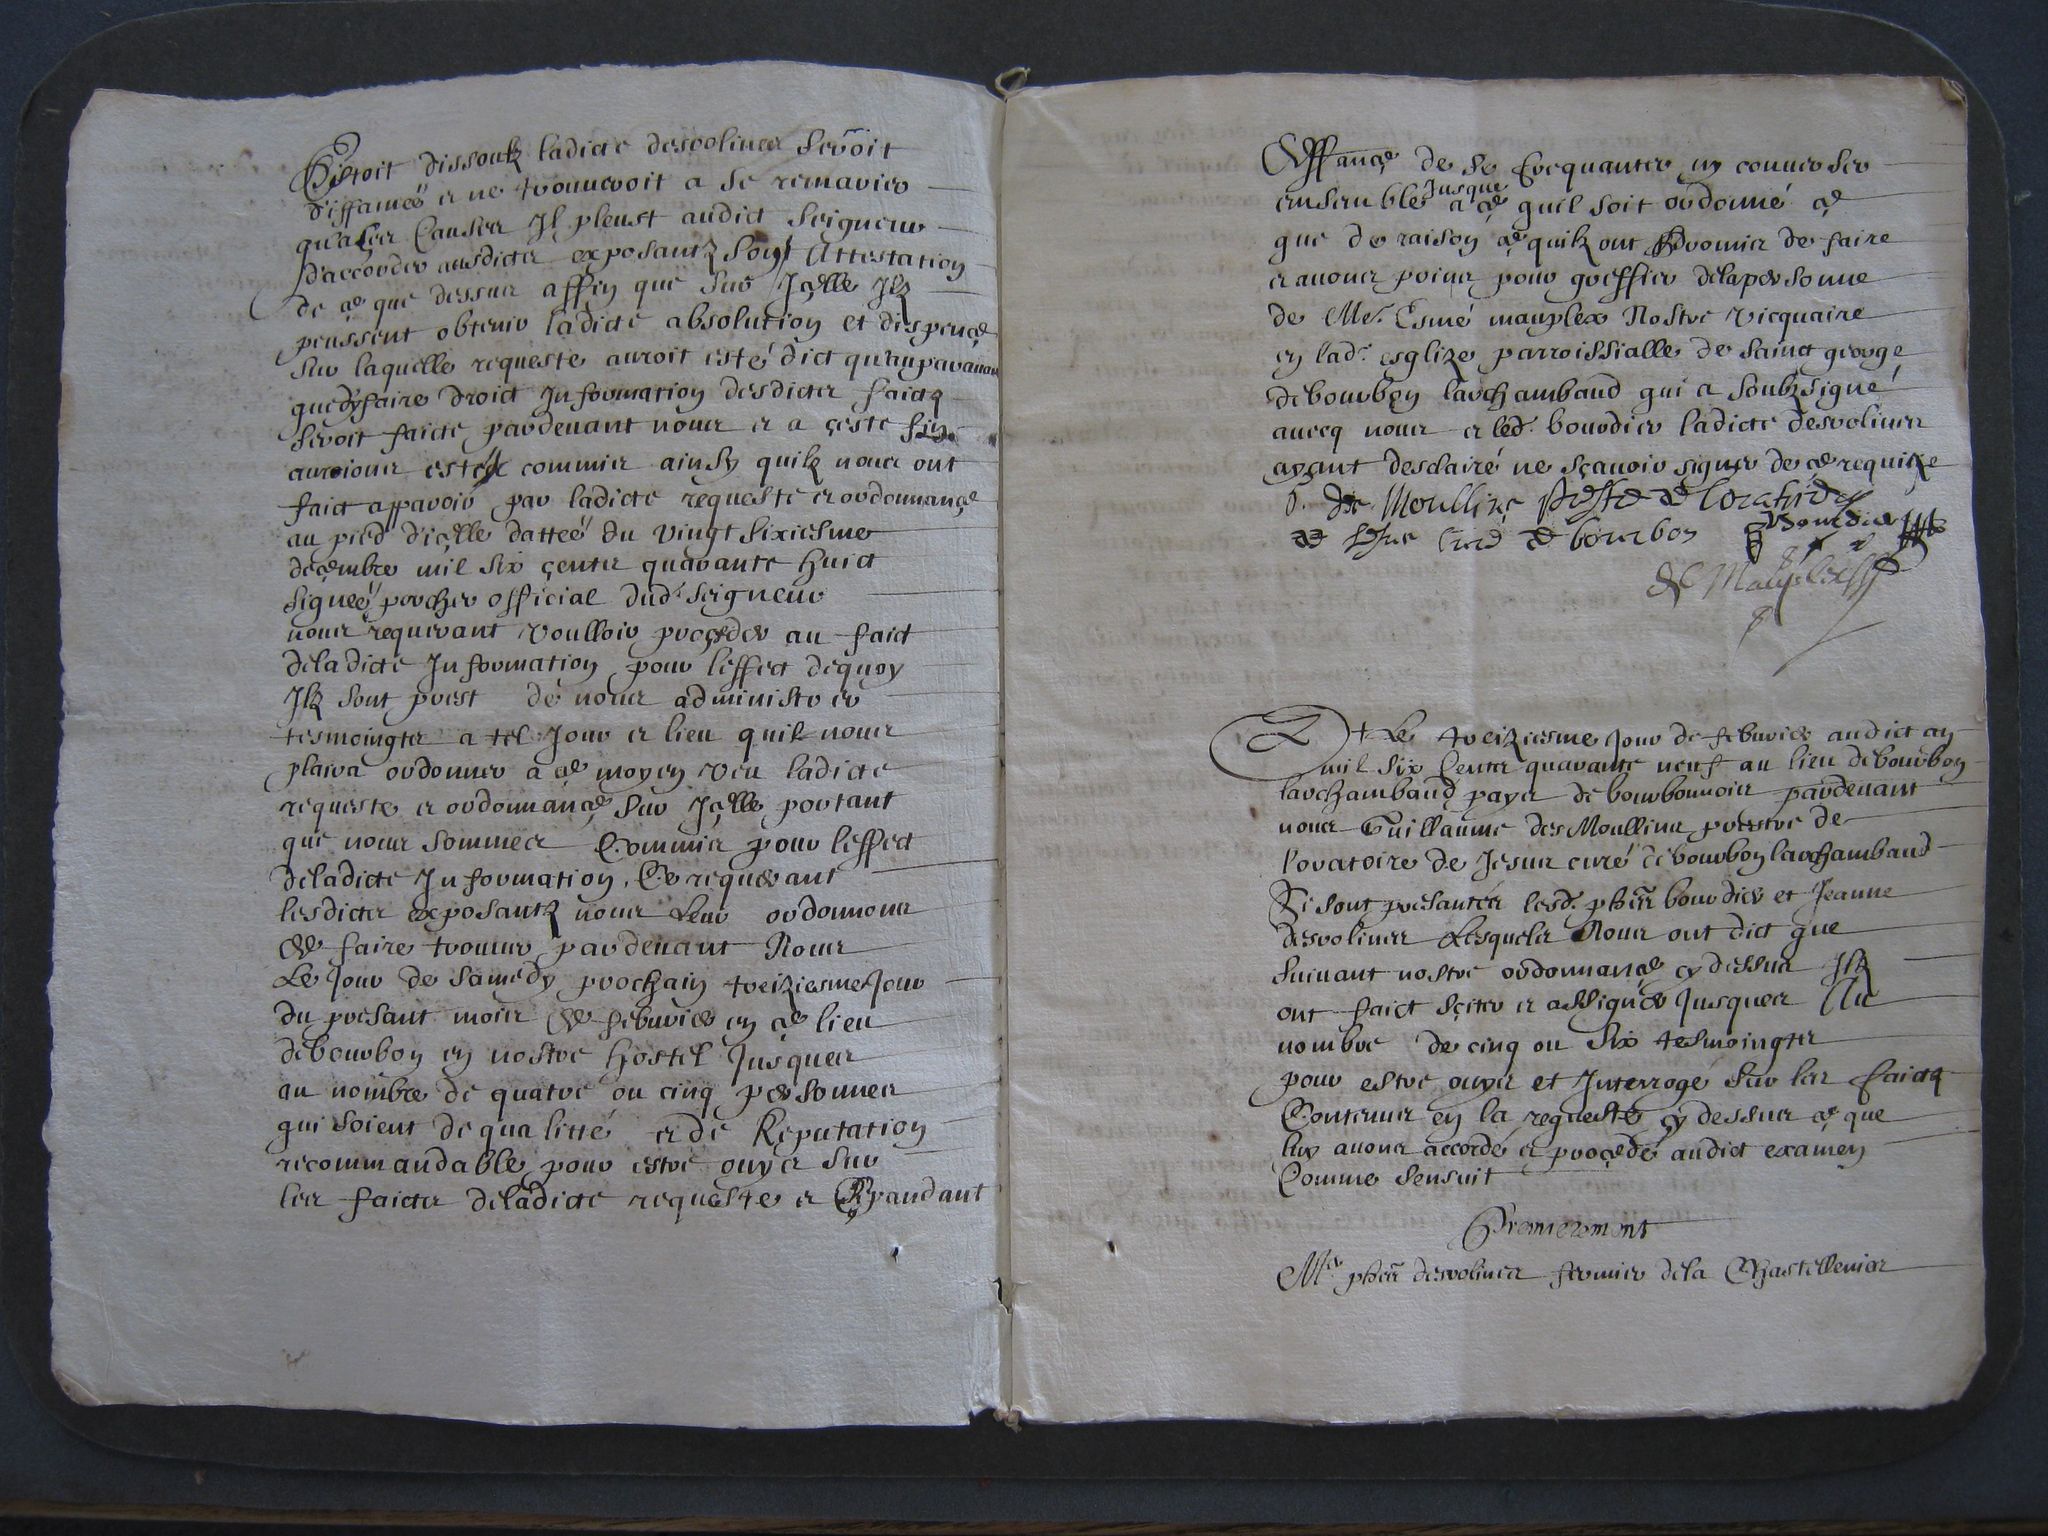 Estoit dissoutz ladicte desrolines seroit
diffamée et ne trouveroit a se remarier
qua ses causes Il pleust audict seigneur
daccorder ausdictes exposantz son Attestation
de ce que dessus affin que sur Icelle Ilz
peussent obtenir ladicte absolution et dispence
sur laquelle requeste auroit esté dict quaupavant
que dy faire droict Information desdictes faictz
seroit faicte pardevant nous et a ceste fin
aurions esté commis ainsy quilz nous ont
faict apparoir par ladicte requeste et ordonnance
au pied dicelle dattée du vingt sixiesme
decembre mil six centz quarante huict
signée porcher official dud. seigneur
nous requerant voulloir proceder au faict
de ladicte Information pour leffect dequoy
Ilz sont prest de nous administrer
tesmoingtz a tel Jour et lieu quil nous
plaira ordonner a ce moyen veu ladicte
requeste et ordonnance sur Icelle portant
que nous sommes Commis pour leffect
de ladicte Information. Ce requerant
lesdictes exposantz nous Leur ordonnons
de faire trouver pardevant Nous
Le Jour de samedy prochain treiziesme Jour
du presant mois de febvrier en ce lieu
de bourbon en nostre hostel Jusques
au nombre de quatre ou cinq personnes
qui soient de qualitté et de Reputation
recommandable pour estre ouyes sur
les faictz de ladicte requeste et Cepandant
deffance de se frecquanter ny converser
ensemble Jusque a ce quil soit ordonné ce
que de raison ce quilz ont promis de faire
et avons prins pour greffier de la personne
de Mre. Esmé mauplex Nostre vicquaire
en lad. esglize parroissialle de sainct george
de bourbon larchambaud qui a soubzsigné
avecq nous et led. bourdier ladicte desrolines
ayant desclairé ne sçavoir signer de ce requize
G. des Moullins prestre de loratoire
de Jesus curé de bourbon Bourdier
E Mauplex
Et Le treiziesme Jour de febvrier audict an
mil six Centz quarante neuf au lieu de bourbon
larchambaud payes de bourbonnois pardevant
nous Guillaume des Moullins prestre de
loratoire de Jesus curé de bourbon larchambaud
Si sont presantés lesd. phes bourdier et Jeanne
desrolines Lesquels Nous ont dict que
suivant nostre ordonnance cy dessus Ilz
ont faict sçiter et assigner Jusques Au
nombre de cinq ou six tesmoingtz
pour estre ouyes et Interrogé sur les faictz
Contenus en la requeste cy dessus ce que
leur avons accordé et procedé audict examen
Comme sensuit
Premierement
Mre phes desrolines fermier de la Chastellenies